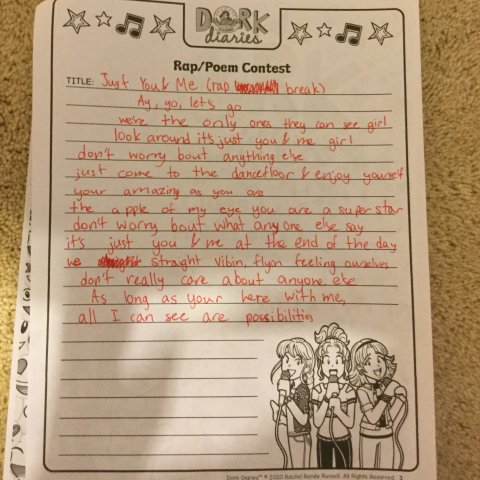 DORK
diaries
Rap/Poem Contest
TITLE: Just You & Me (rap break)
Ay, yo, let's go
we're the only ones they can see girl
look around it's just you & me girl
don't worry bout anything else
just come to the dancefloor & enjoy yourself
your amazing as you are
the apple of my eye you are a superstar
don't worry bout what anyone else say
it's just you & me at the end of the day
we straight vibin, flyin feeling ourselves
don't really care about anyone else
As long as your here with me,
all I can see are possibilities
Dork Diaries™ © 2020 Rachel Renée Russell. All Rights Reserved. 3